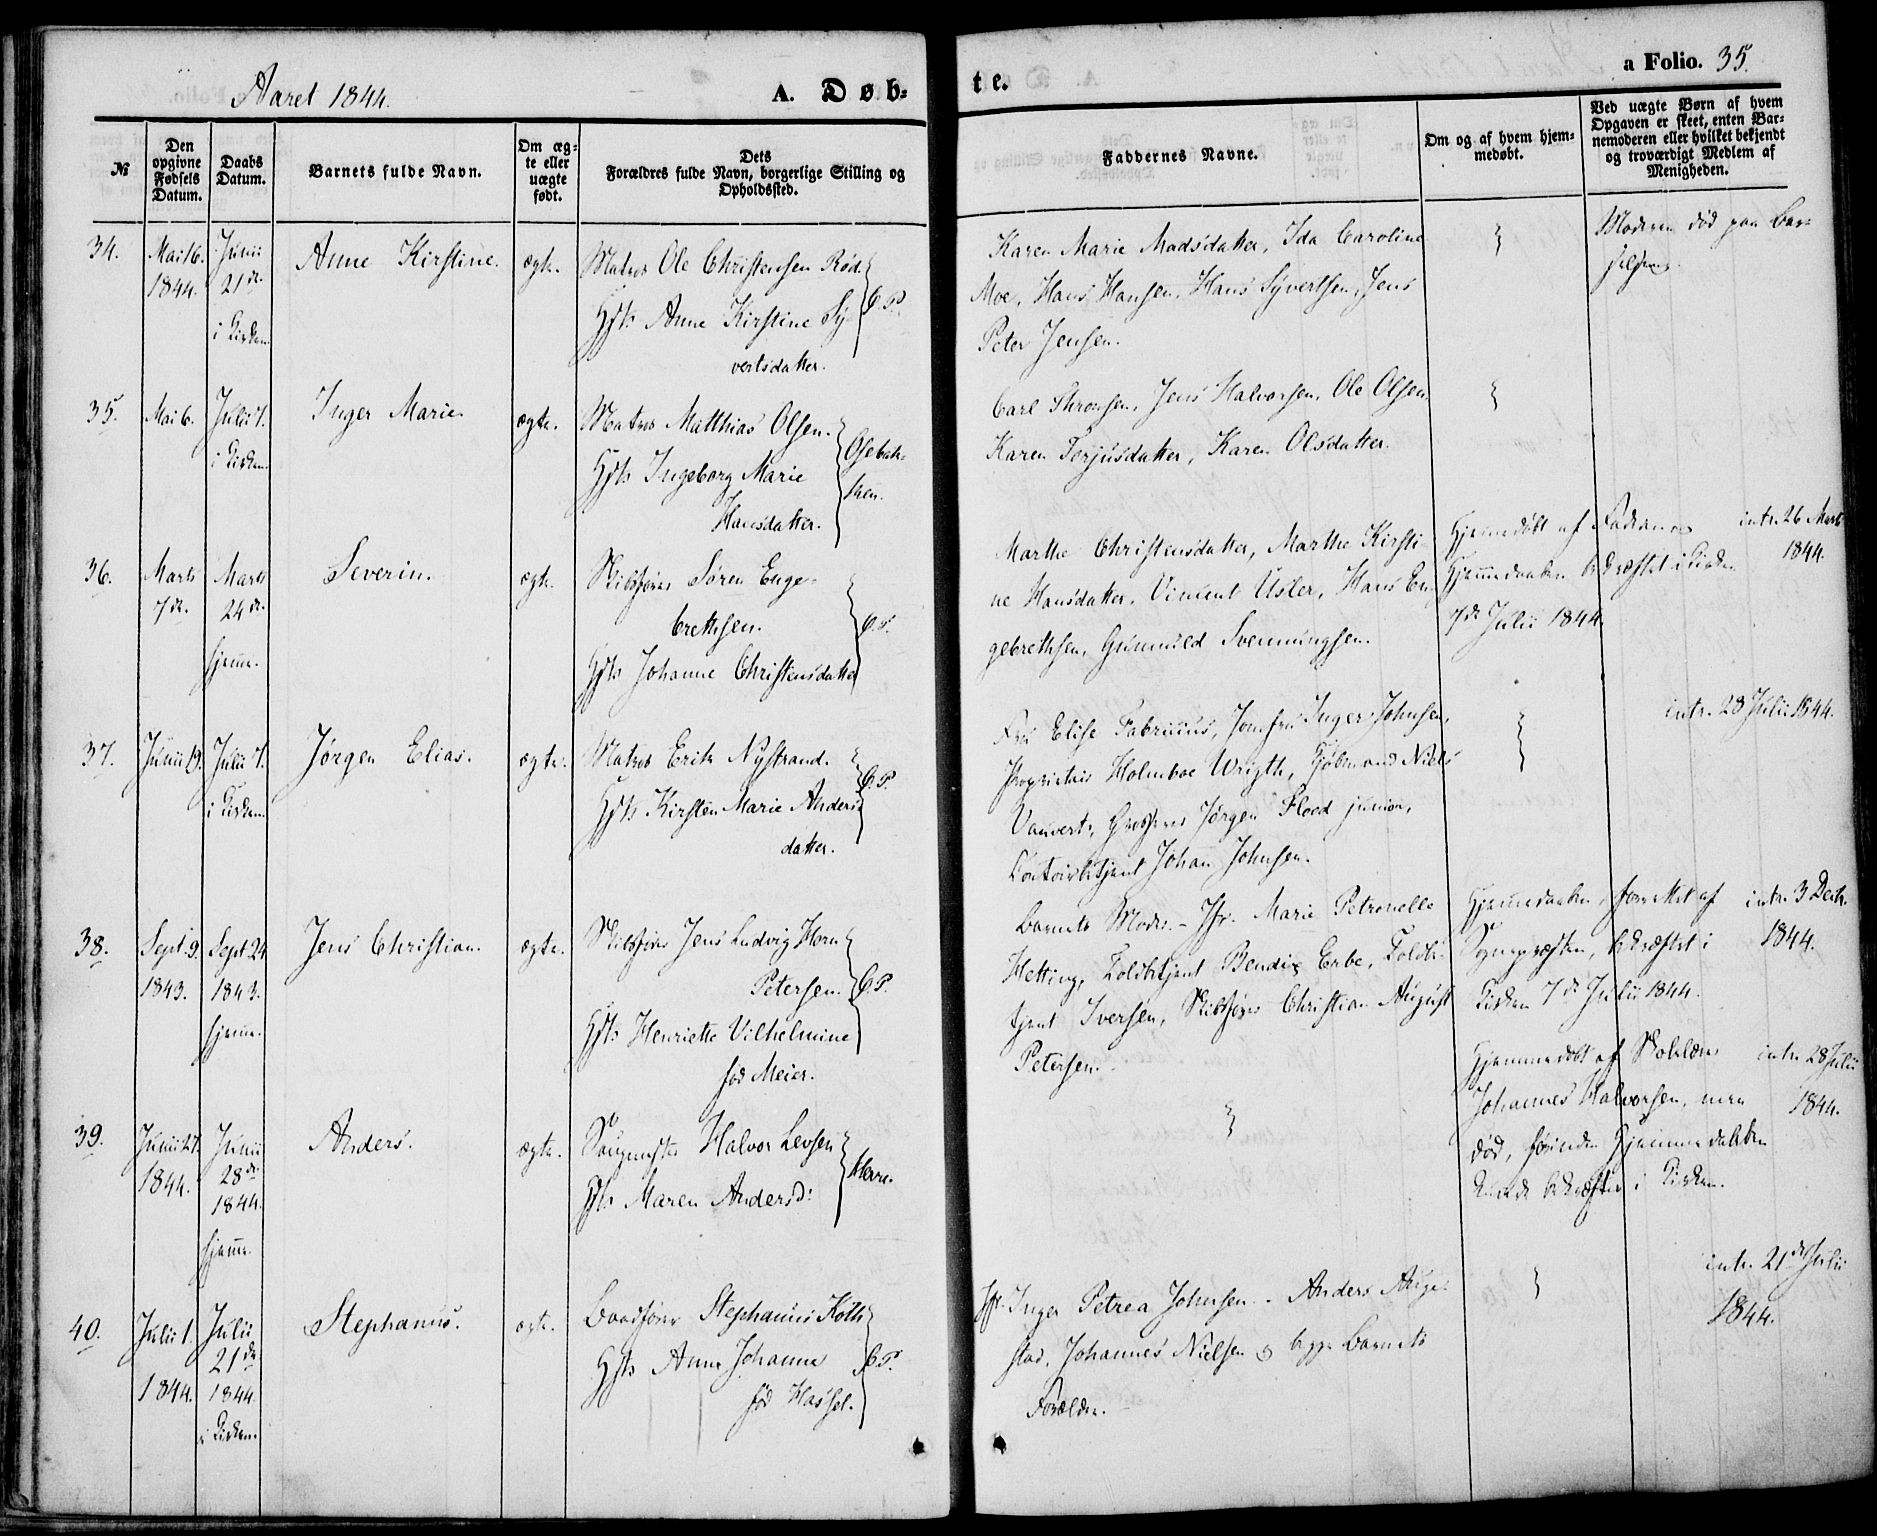 Aaret 1844.
A. Døb-
te.
a Folio. 35.
№
Den opgivne Fødsels Datum.
Daabs Datum.
Barnets fulde Navn.
Om æg-
te eller
uægte
født.
Dets
Forældres fulde Navn, borgerlige Stilling og
Opholdssted.
Faddernes Navne.
Om og af hvem hjem-
medøbt.
Ved uægte Børn af hvem
Opgaven er skeet, enten Bar-
nemoderen eller hvilket bekjendt
og troværdigt Medlem af
Menigheden.
34.
Mai 16.
1844.
Junii
21de
i Kirken
Anne Kirstine.
ægte.
Matros Ole Christensen Rød.
Hst. Anne Kirstine Sy-
vertsdatter.
Karen Marie Madsdatter, Ida Caroline
Moe, Hans Hansen, Hans Syvertsen, Jens
Peter Jensen.
Moderen død paa Bar-
selseng.
35.
Mai 6.
Julii 7.
i Kirken
Inger Marie.
ægte.
Matros Matthias Olsen.
Hst. Ingeborg Marie
Hansdatter.
Osebak-
ken.
Carl Thronsen, Jens Halvorsen, Ole Olsen
Karen Torjusdatter, Karen Olsdatter.
36.
Marts
7de
Marts
24de
hjemme.
Severin.
ægte.
Skibsfører Søren Enge-
brethsen.
Hst. Johanne Christensdatter
Marthe Christensdatter, Marthe Kirsti-
ne Hansdatter, Vincent Usler, Hans En-
gebrethsen, Gunnuld Svenningsen.
Hjemmedøbt af Faderen
Hjemmedaaben bekræftet i Kirken
7de Julii 1844.
intr. 26 Marts
1844.
37.
Junii 19.
Julii 7.
i Kirken
Jørgen Elias.
ægte.
Matros Erik Nystrand.
Hst. Kirsten Marie Anders-
datter.
Fru Elise Fabricius, Jomfru Inger Johnsen,
Proprietair Holmboe Wrigth, Kjøbmand Niels
Vauvert, Grosserer Jørgen Flood junior,
Contoirbetjent Johan Johnsen.
intr. 28 Julii 1844.
38.
Sept. 9.
1843.
Sept. 24
1843.
hjemme.
Jens Christian.
ægte.
Skibsfører Jens Ludvig Horn
Petersen.
Hst. Henriette Vilhelmine
fød Meier.
Barnets Moder. - Jfr. Marie Petronelle
Hetting, Toldbetjent Bendix Erbe, Toldbe-
tjent Iversen, Skibsfører Christian August
Petersen.
Hjemmedaaben, forrettet af
Sognepræsten, bekræftet i
Kirken 7de Julii 1844.
intr. 3 Decbr.
1844.
39.
Junii 27.
1844.
Junii
28de
1844.
hjemme.
Anders.
ægte.
Saugmester Halvor Levsen
Hst. Maren Andersd:
Herre.
Hjemmedøbt af Skolelærer
Johannes Halvorsen, men
død, førinden Hjemmedaaben
kunde bekræftes i Kirken.
intr. 28 Julii
1844.
40.
Julii 1.
1844.
Julii
21de
1844.
i Kirken.
Stephanus.
ægte.
Baadfører Stephanus Koth
Hst. Anne Johanne
fød Hassel.
Jfr. Inger Petrea Johnsen - Anders Auge-
stad, Johannes Nielsen og begge Barnets
Forældre.
intr. 21de Julii
1844.